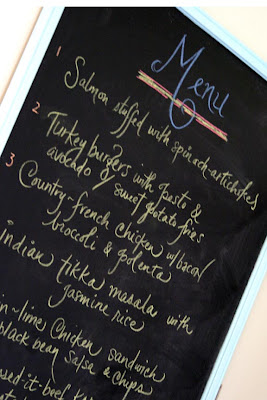 Menu
1 Salmon stuffed with spinach-artichokes
2 Turkey burgers with pesto &
avocado & sweet potato fries
3 Country-french chicken w/bacon/
broccoli & polenta
indian tikka masala with
jasmine rice
-lime Chicken sandwich
black bean salsa & chips